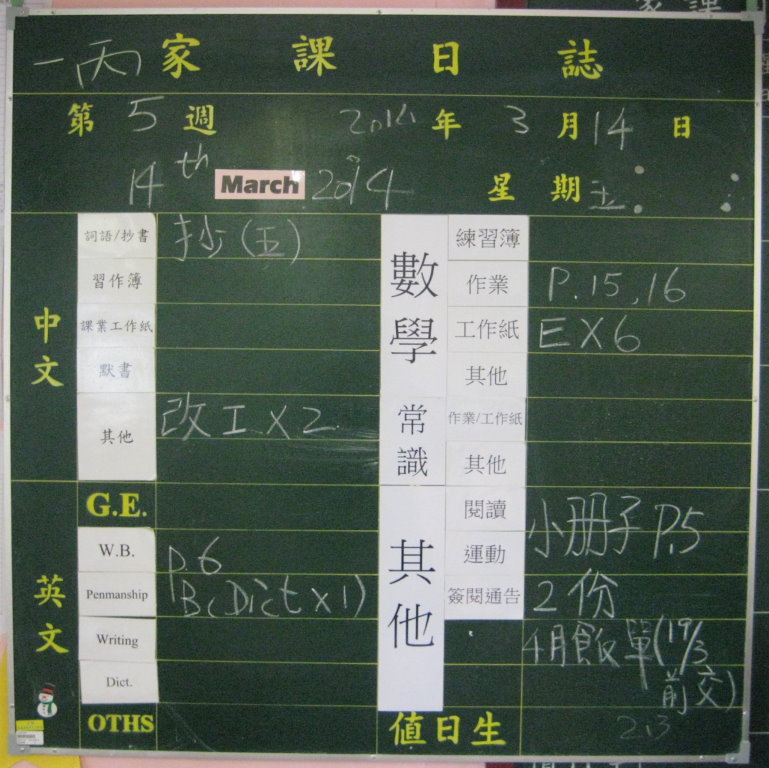 一丙 家 課 日 誌
第 5 週 2014 年 3 月 14 日
14th March 2014 星 期 五
中文
詞語/抄書 抄(五)
習作簿
課業工作紙
默書
其他 改工X2
G.E.
英文
W.B. P.6
Penmanship B(Dict x 1)
Writing
Dict.
OTHS
數學
練習簿
作業 P.15,16
工作紙 EX6
其他
常識
作業/工作紙
其他
其他
閱讀 小冊子 P.5
運動
簽閱通告 2份
4月飯單(19/3
前交)
值日生 2,3